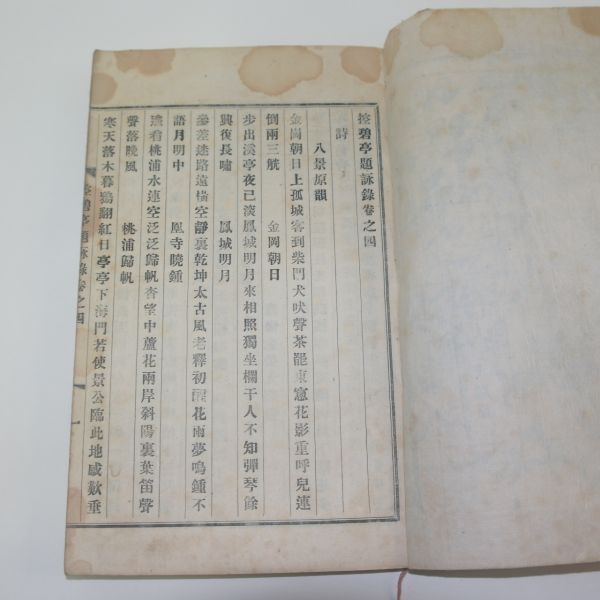 挹碧亭題詠錄卷之四
詩
八景原韻
金岡朝日上孤城客到柴門犬吠聲茶罷東窓花影重呼兒連
倒兩三觥 金岡朝日
步出溪亭夜已淡鳳城明月來相照獨坐欄干人不知彈琴餘
興復長嘯 鳳城明月
參差迷路遠橫空靜裏乾坤太古風老釋初醒花雨夢鳴鍾不
語月明中 凰寺曉鍾
遙看桃浦水連空泛泛歸帆杳望中蘆花兩岸斜陽裏葉笛聲
聲落晩風 桃浦歸帆
寒天落木暮鴉翻紅日亭亭下海門若使景公臨此地感歎垂
挹碧亭題詠錄 卷之四 一